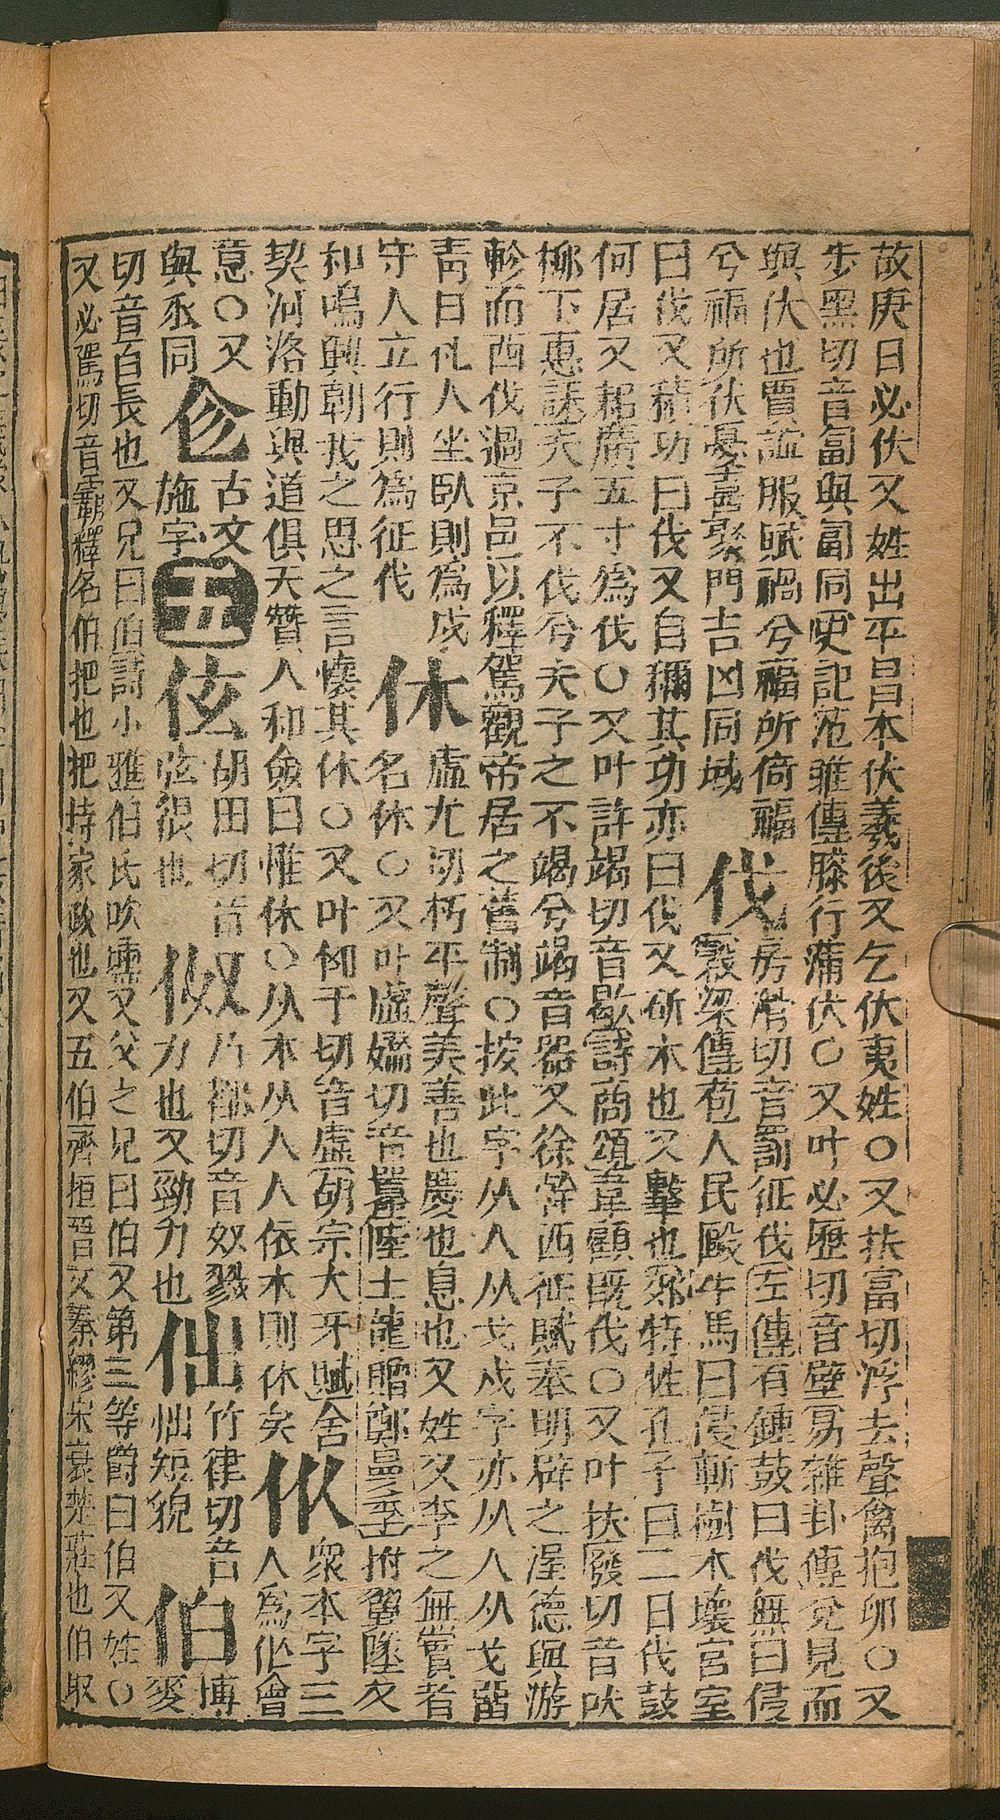 故庚日必伏又姓出平昌本伏羲後又乞伏夷姓○又扶富切浮去聲禽抱卵○又
步黑切音匐與匐同史記范雎傳膝行蒲伏○又叶必歷切音壁易雜卦傳兌見而
巽伏也賈誼服賦禍兮福所倚福
兮禍所伏憂喜聚門吉凶同域
伐
房滑切音罰征伐左傳有鍾鼓曰伐無曰侵
穀梁傳苞人民毆牛馬曰侵斬樹木壞宮室
曰伐又積功曰伐又自稱其功亦曰伐又斫木也又擊也郊特牲孔子曰二日伐鼓
何居又耜廣五寸爲伐○又叶許竭切音歇詩商頌韋顧旣伐○又叶扶廢切音吠
柳下惠誄夫子不伐兮夫子之不竭兮竭音器又徐幹西征賦奉明辟之渥德與游
軫而西伐過京邑以釋駕觀帝居之舊制○按此字从人从戈戍字亦从人从戈
青曰凡人坐臥則爲戍
守人立行則爲征伐
休
虛尤切朽平聲美善也慶也息也又姓又李之無實者
名休○又叶虛嬌切音囂陸士龍贈鄭曼季拊翼墜夂
和鳴興朝我之思之言懷其休○又叶匈于切音虛胡宗大牙賦舍
契河洛動與道俱天贊人和僉曰惟休○从木从人人依木則休矣
㐺
眾本字三
人爲㐺會
意○又
與永同
仺
古文
施字
五
伭
胡田切音
弦很也
伮
乃都切音奴戮
力也又勁力也
㑁
竹律切音
㤕短貌
伯
博
麥
切音百長也又兄曰伯詩小雅伯氏吹壎又父之兄曰伯又第三等爵曰伯又姓○
又必駕切音霸釋名伯把也把持家政也又五伯齊桓晉文秦繆宋襄楚莊也伯取